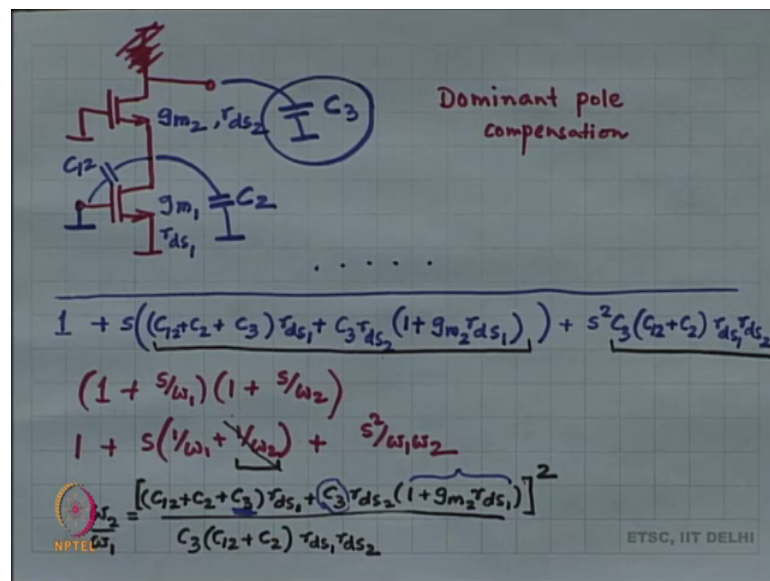 C₃
Dominant pole
compensation
gm₂, rds₂
C₁₂
gm₁
C₂
rds₁
. . . . .
1 + s((C₁₂+C₂+C₃)rds₁+C₃rds₂(1+gm₂rds₁)) + s²C₃(C₁₂+C₂)rds₁rds₂
(1 + s/ω₁)(1 + s/ω₂)
1 + s(1/ω₁+1/ω₂) + s²/ω₁ω₂
ω₂/ω₁ = [(C₁₂+C₂+C₃)rds₁+C₃rds₂(1+gm₂rds₁)]²
C₃(C₁₂+C₂)rds₁rds₂
NPTEL
ETSC, IIT DELHI